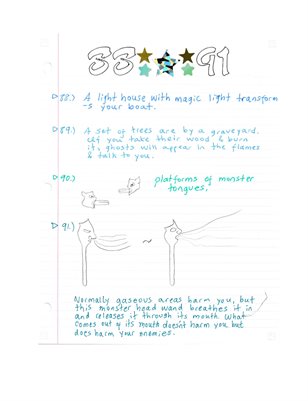 88 91
88.) A light house with magic light transform
-s your boat.
89.) A set of trees are by a graveyard.
If you take their wood & burn
it, ghosts will appear in the flames
& talk to you.
90.) platforms of monster
tongues.
91.) ~
Normally gaseous areas harm you, but
this monster head wand breathes it in
and releases it through its mouth. What
comes out of its mouth doesnt harm you, but
does harm your enemies.